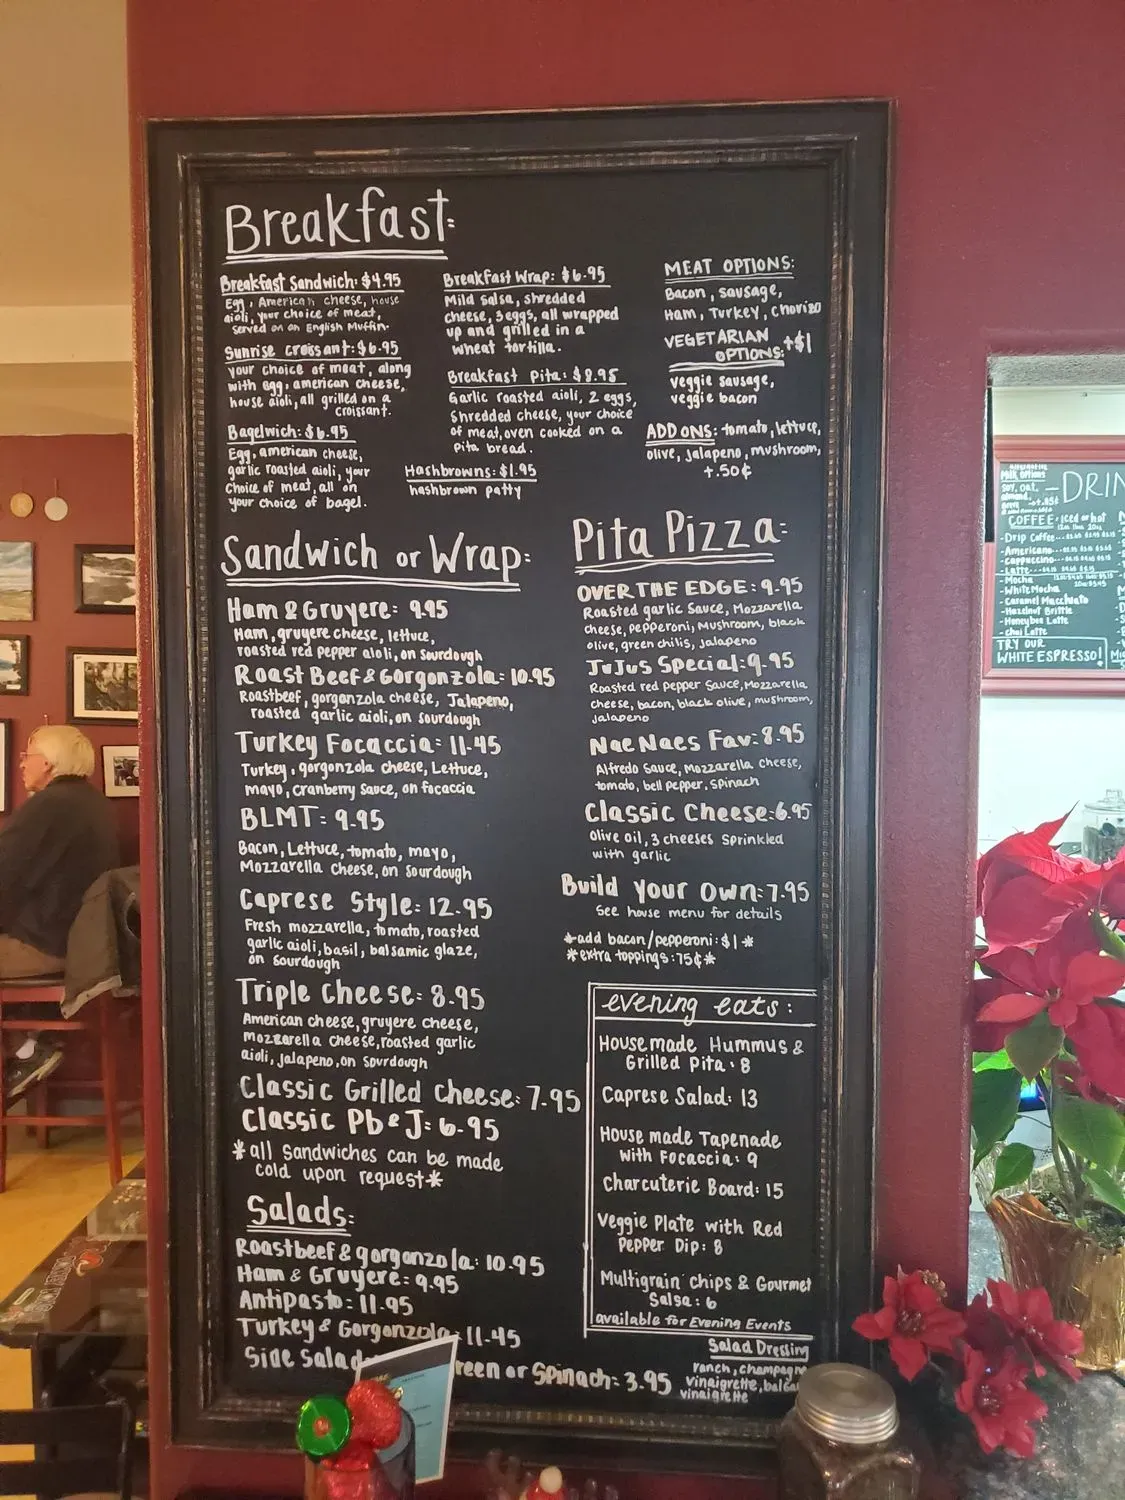 Breakfast:
Breakfast Sandwich: $4.95
Egg, American cheese, house
aioli, your choice of meat,
served on an English Muffin.
Sunrise croissant: $6.95
your choice of meat, along
with egg, american cheese,
house aioli, all grilled on a
croissant.
Bagelwich: $6.95
Egg, american cheese,
garlic roasted aioli, your
choice of meat, all on
your choice of bagel.
Breakfast Wrap: $6.95
Mild salsa, shredded
cheese, 3 eggs, all wrapped
up and grilled in a
wheat tortilla.
Breakfast Pita: $8.95
Garlic roasted aioli, 2 eggs,
Shredded cheese, your choice
of meat, oven cooked on a
pita bread.
Hashbrowns: $1.95
hashbrown patty
MEAT OPTIONS:
Bacon, sausage,
Ham, Turkey, chorizo
VEGETARIAN
OPTIONS: +$1
veggie sausage,
veggie bacon
ADD ONS: tomato, lettuce,
olive, jalapeno, mushroom,
+.50¢
Sandwich or Wrap:
Ham & Gruyere: 9.95
Ham, gruyere cheese, lettuce,
roasted red pepper aioli, on sourdough
Roast Beef & Gorgonzola: 10.95
Roastbeef, gorgonzola cheese, Jalapeno,
roasted garlic aioli, on sourdough
Turkey Focaccia: 11.45
Turkey, gorgonzola cheese, Lettuce,
mayo, cranberry sauce, on focaccia
BLMT: 9.95
Bacon, Lettuce, tomato, mayo,
Mozzarella cheese, on sourdough
Caprese Style: 12.95
Fresh mozzarella, tomato, roasted
garlic aioli, basil, balsamic glaze,
on sourdough
Triple Cheese: 8.95
American cheese, gruyere cheese,
mozzarella cheese, roasted garlic
aioli, jalapeno, on sourdough
Classic Grilled Cheese: 7.95
Classic Pb & J: 6.95
*all sandwiches can be made
cold upon request*
Salads:
Roastbeef & gorgonzola: 10.95
Ham & Gruyere: 9.95
Antipasto: 11.95
Turkey & Gorgonzola: 11.45
Side Salad reen or Spinach: 3.95
Pita Pizza:
OVER THE EDGE: 9.95
Roasted garlic Sauce, Mozzarella
cheese, pepperoni, Mushroom, black
olive, green chilis, jalapeno
JuJus Special: 9.95
Roasted red pepper Sauce, Mozzarella
cheese, bacon, black olive, mushroom,
jalapeno
NaeNaes Fav: 8.95
Alfredo Sauce, Mozzarella cheese,
tomato, bell pepper, spinach
Classic Cheese: 6.95
Olive oil, 3 cheeses sprinkled
with garlic
Build Your Own: 7.95
See house menu for details
*add bacon/pepperoni: $1*
*extra toppings: 75¢*
evening eats:
House made Hummus &
Grilled Pita: 8
Caprese Salad: 13
House made Tapenade
with Focaccia: 9
Charcuterie Board: 15
Veggie Plate with Red
Pepper Dip: 8
Multigrain chips & Gourmet
Salsa: 6
available for Evening Events
Salad Dressing
ranch, champagne
vinaigrette, balsa
vinaigrette
Milk options
soy, oat,
almond,
DRIN
COFFEE: Iced or hot
- Drip Coffee
- Americano
- Cappuccino
- Latte
- Mocha
- White Mocha
- Caramel Macchiato
- Hazelnut Brittle
- Honeybee Latte
- chai Latte
TRY OUR
WHITE ESPRESSO!